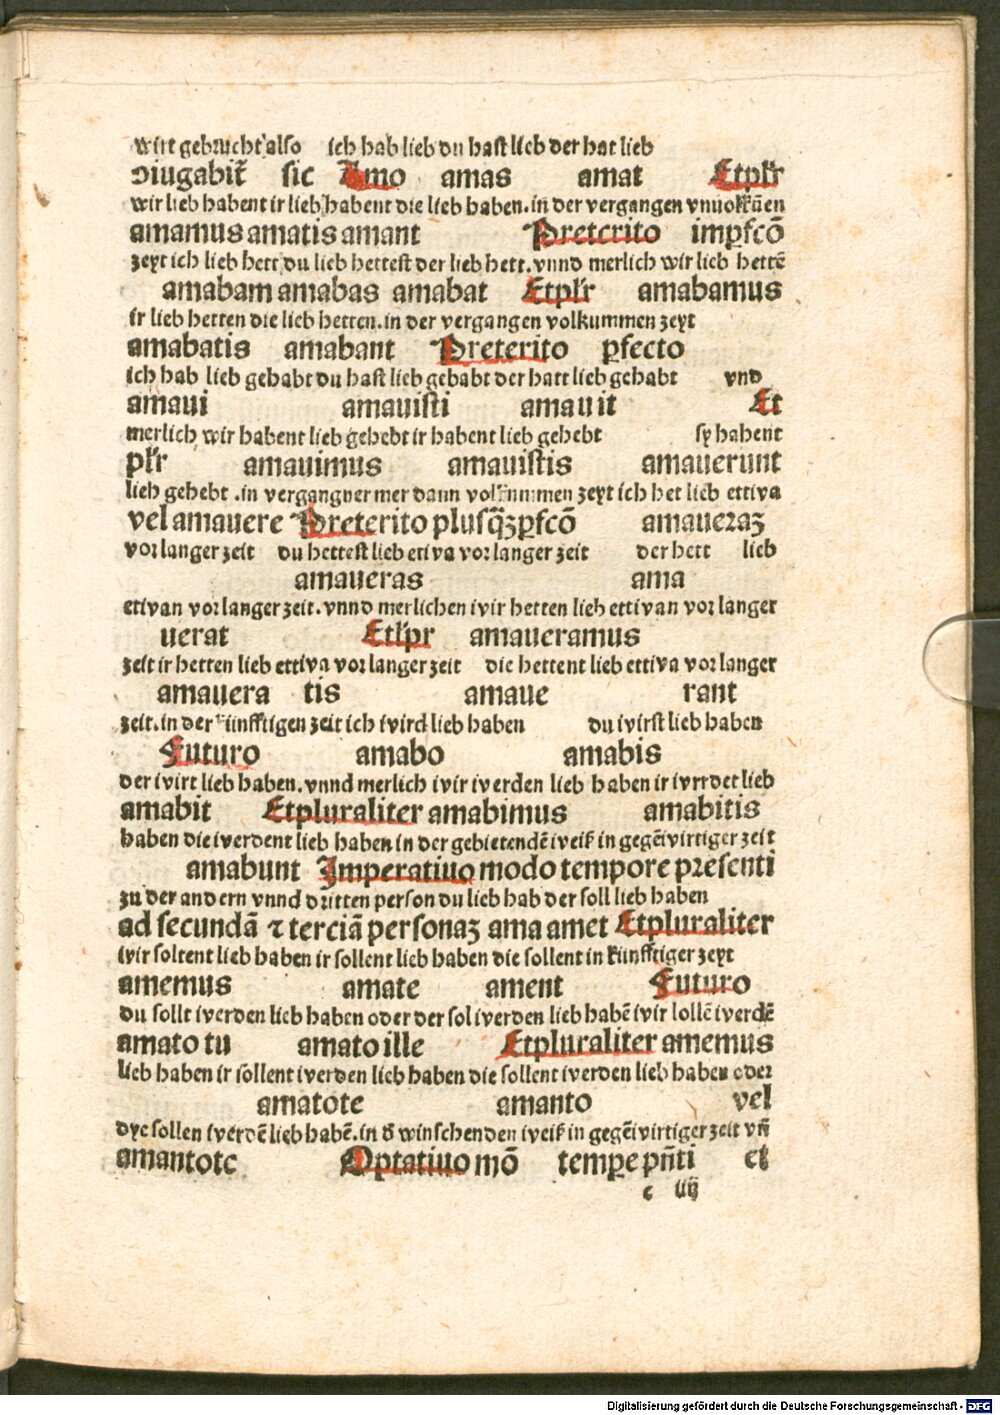 wirt gebrucht also ich hab lieb du hast lieb der hat lieb
ↄiugabit̃ sic Amo amas amat Et pl̃r
wir lieb habent ir lieb habent die lieb haben. in der vergangen vnuolkũen
amamus amatis amant Preterito imꝑfcõ
zeyt ich lieb hett du lieb hettest der lieb hett. vnnd merlich wir lieb hettẽ
amabam amabas amabat Et pl̃r amabamus
ir lieb hetten die lieb hetten. in der vergangen volkummen zeyt
amabatis amabant Preterito ꝑfecto
ich hab lieb gehabt du hast lieb gehabt der hatt lieb gehabt vnd
amaui amauisti amauit Et
merlich wir habent lieb gehebt ir habent lieb gehebt sy habent
pl̃r amauimus amauistis amauerunt
lieb gehebt . in vergangner mer dann volkummen zeyt ich het lieb ettwa
vel amauere Preterito plusq̃ꝫꝑfcõ amaueraꝫ
vor langer zeit du hettest lieb etwa vor langer zeit der hett lieb
amaueras ama
etwan vor langer zeit. vnnd merlichen wir hetten lieb ettwan vor langer
uerat Et l̃pr amaueramus
zeit ir hetten lieb ettwa vor langer zeit die hettent lieb ettwa vor langer
amauera tis amaue rant
zeit. in der künfftigen zeit ich wird lieb haben du wirst lieb haben
Futuro amabo amabis
der wirt lieb haben. vnnd merlich wir werden lieb haben ir wrrdet lieb
amabit Et pluraliter amabimus amabitis
haben die werdent lieb haben in der gebietendẽ weiß in gegẽwirtiger zeit
amabunt Imperatiuo modo tempore presenti
zu der andern vnnd dritten person du lieb hab der soll lieb haben
ad secundã ⁊ terciã personaꝫ ama amet Et pluraliter
wir soltent lieb haben ir sollent lieb haben die sollent in künfftiger zeyt
amemus amate ament Futuro
du sollt werden lieb haben oder der sol werden lieb habẽ wir sollẽ werdẽ
amato tu amato ille Et pluraliter amemus
lieb haben ir sollent werden lieb haben die sollent werden lieb haben oder
amatote amanto vel
dye sollen werdẽ lieb habẽ. in ď winschenden weiß in gegẽwirtiger zeit vñ
amantote Optatiuo mõ tempꝑe pñti et
c iiij
Digitalisierung gefördert durch die Deutsche Forschungsgemeinschaft - DFG